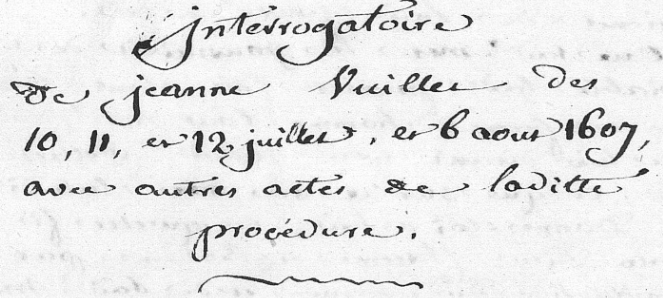 Interrogatoire
de jeanne Vuillet des
10, 11, et 12 juillet, et 6 aout 1607,
avec autres actes de laditte
procédure.